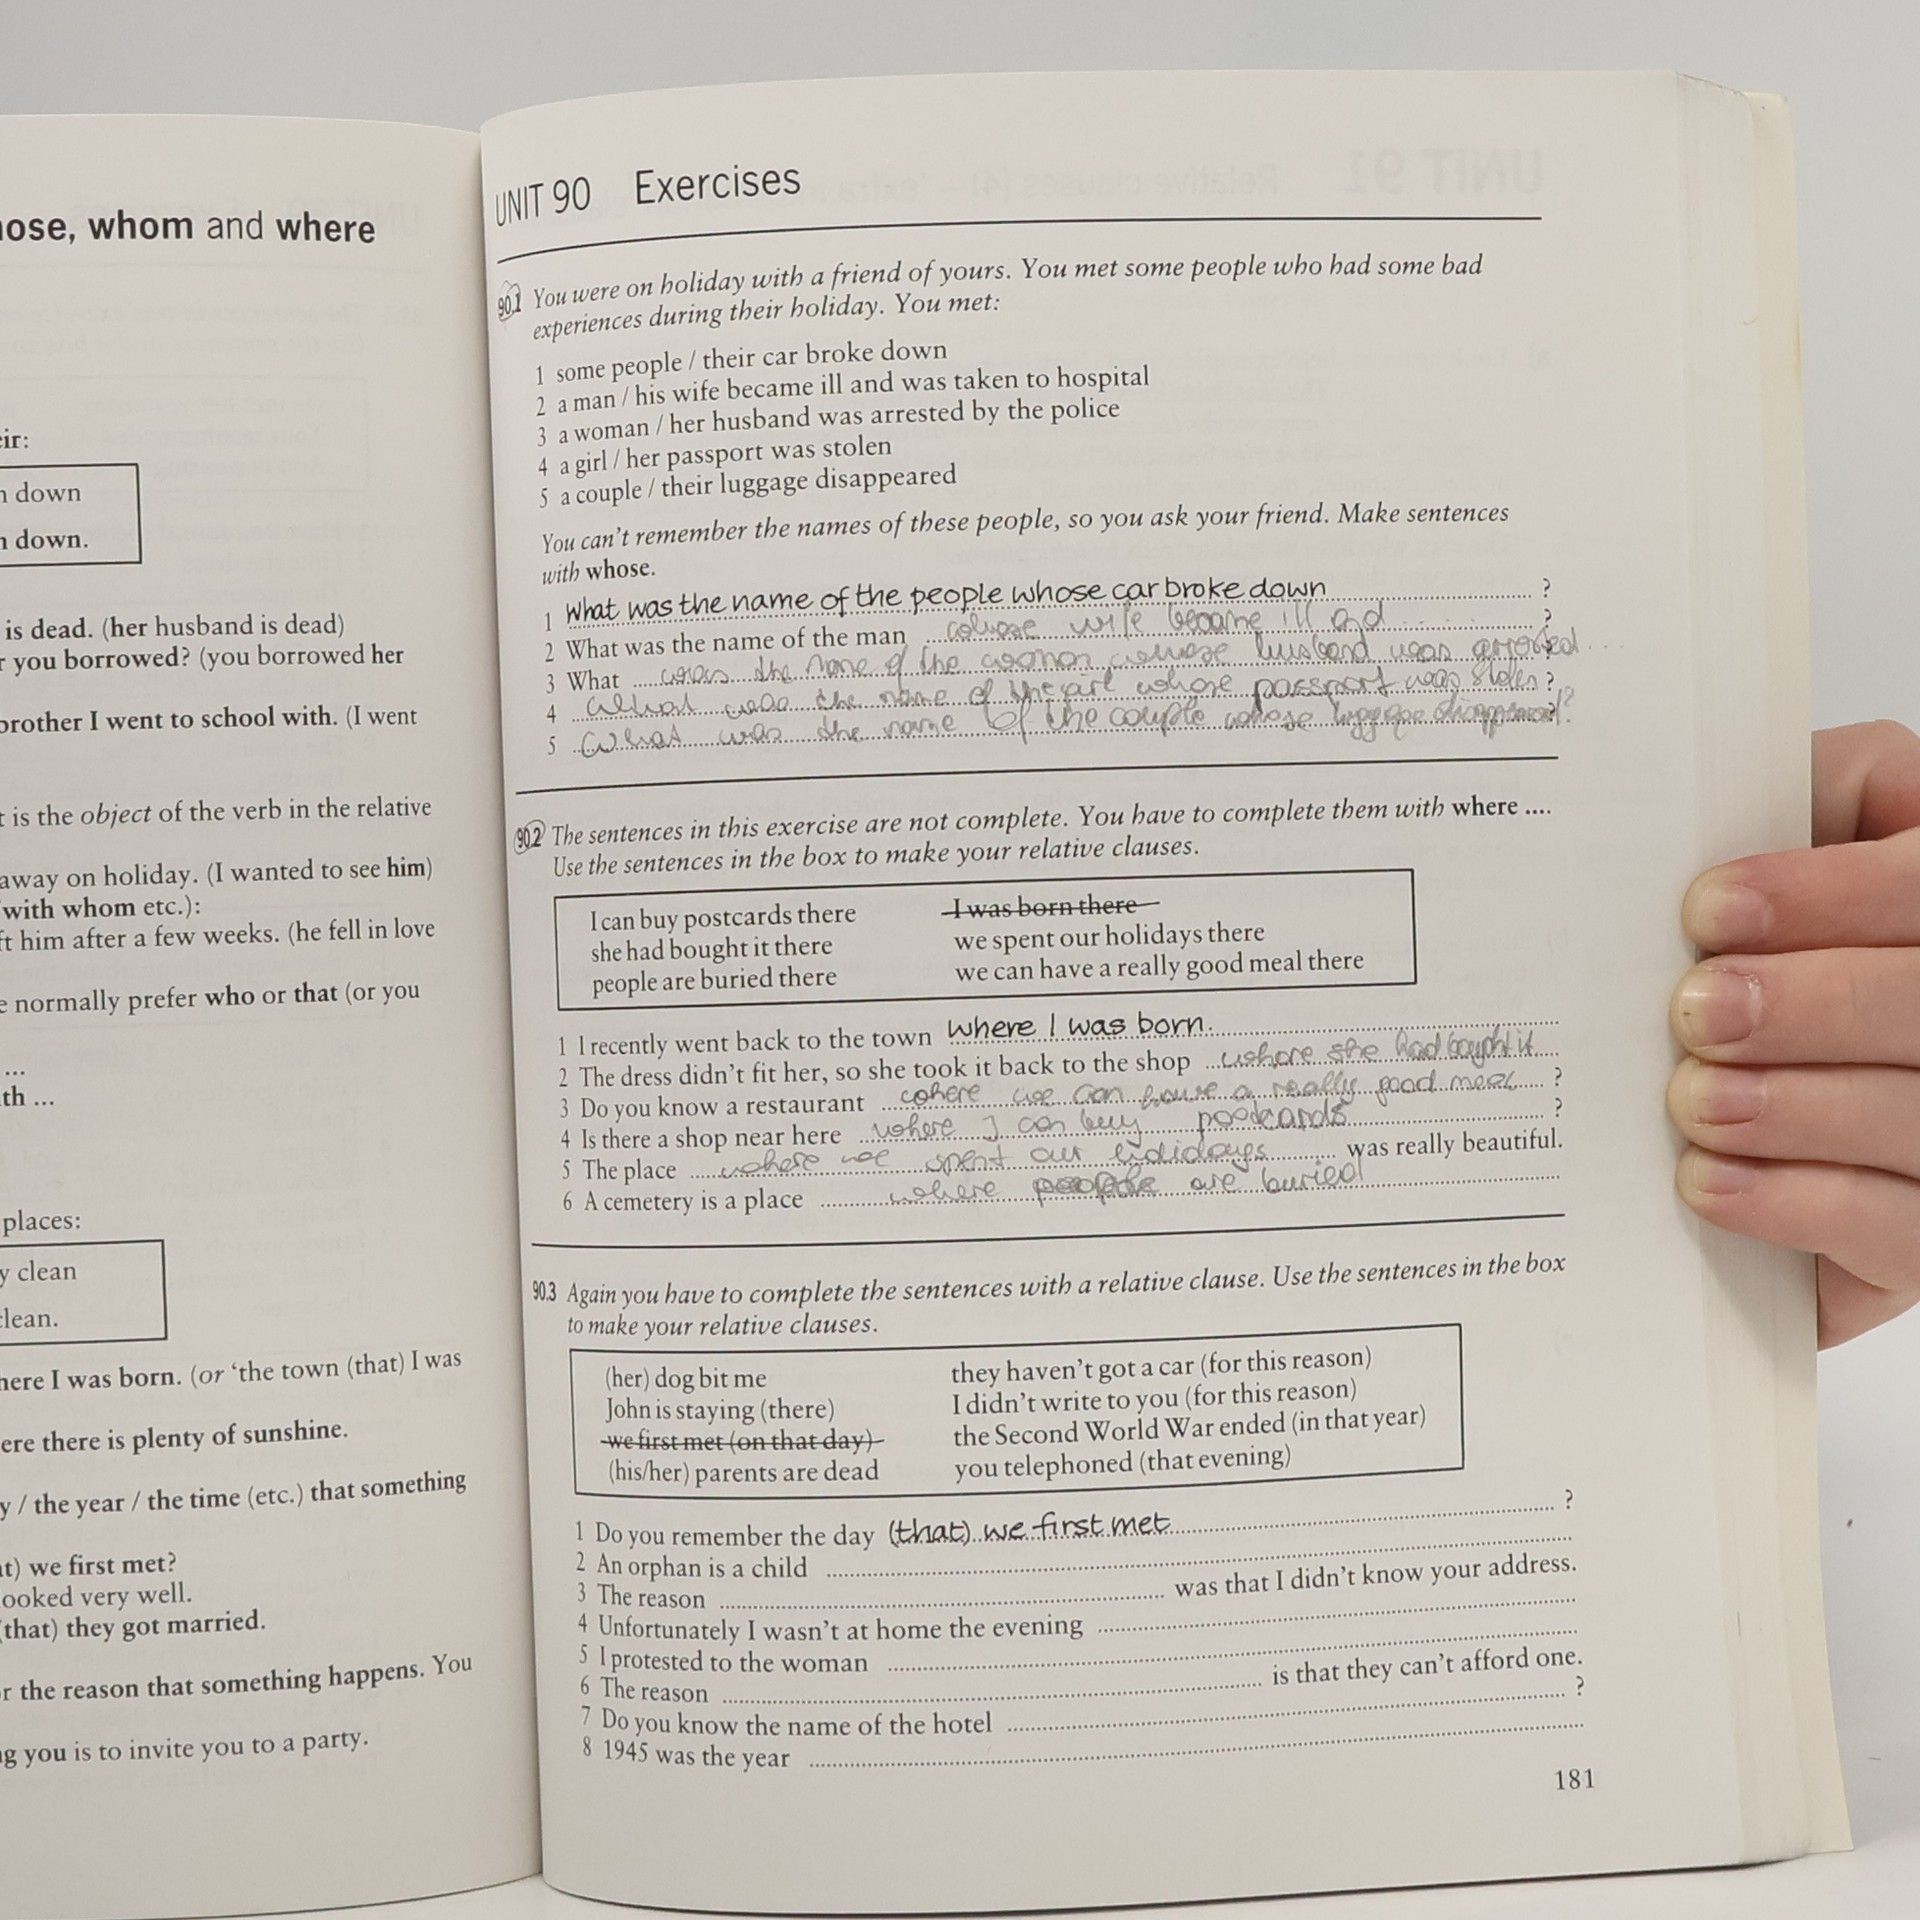 hose, whom and where
eir:
n down
n down.
is dead. (her husband is dead)
r you borrowed? (you borrowed her
brother I went to school with. (I went
t is the object of the verb in the relative
away on holiday. (I wanted to see him)
'with whom etc.):
ft him after a few weeks. (he fell in love
e normally prefer who or that (or you
...
th ...
places:
y clean
clean.
here I was born. (or 'the town (that) I was
ere there is plenty of sunshine.
y / the year / the time (etc.) that something
at) we first met?
ooked very well.
(that) they got married.
or the reason that something happens. You
ng you is to invite you to a party.
UNIT 90 Exercises
90.1 You were on holiday with a friend of yours. You met some people who had some bad
experiences during their holiday. You met:
1 some people / their car broke down
2 a man / his wife became ill and was taken to hospital
3 a woman / her husband was arrested by the police
4 a girl / her passport was stolen
5 a couple / their luggage disappeared
You can't remember the names of these people, so you ask your friend. Make sentences
with whose.
1 What was the name of the people whose car broke down ?
2 What was the name of the man whose wife became ill and .... ?
3 What was the name of the woman whose husband was arrested ... ?
4 What was the name of the girl whose passport was stolen ?
5 What was the name of the couple whose luggage disappeared?
90.2 The sentences in this exercise are not complete. You have to complete them with where ....
Use the sentences in the box to make your relative clauses.
I can buy postcards there I was born there
she had bought it there we spent our holidays there
people are buried there we can have a really good meal there
1 I recently went back to the town where I was born.
2 The dress didn't fit her, so she took it back to the shop where she had bought it
3 Do you know a restaurant where we can have a really good meal ?
4 Is there a shop near here where I can buy postcards ?
5 The place where we spent our holidays was really beautiful.
6 A cemetery is a place where people are buried
90.3 Again you have to complete the sentences with a relative clause. Use the sentences in the box
to make your relative clauses.
(her) dog bit me they haven't got a car (for this reason)
John is staying (there) I didn't write to you (for this reason)
we first met (on that day) the Second World War ended (in that year)
(his/her) parents are dead you telephoned (that evening)
1 Do you remember the day (that) we first met ?
2 An orphan is a child
3 The reason was that I didn't know your address.
4 Unfortunately I wasn't at home the evening
5 I protested to the woman
6 The reason is that they can't afford one.
7 Do you know the name of the hotel ?
8 1945 was the year
181